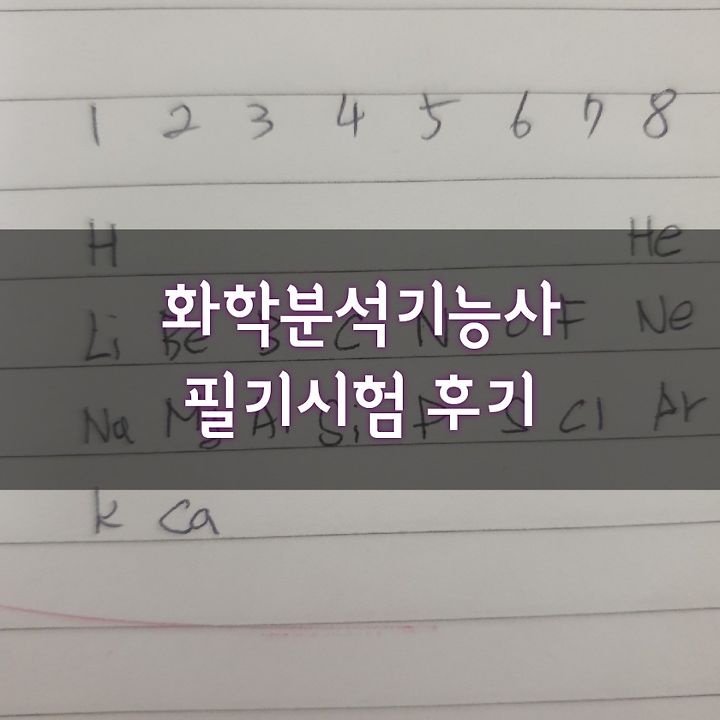 1 2 3 4 5 6 7 8
H He
화학분석기능사
Li Be B C N O F Ne
필기시험 후기
Na Mg Al Si P S Cl Ar
K Ca